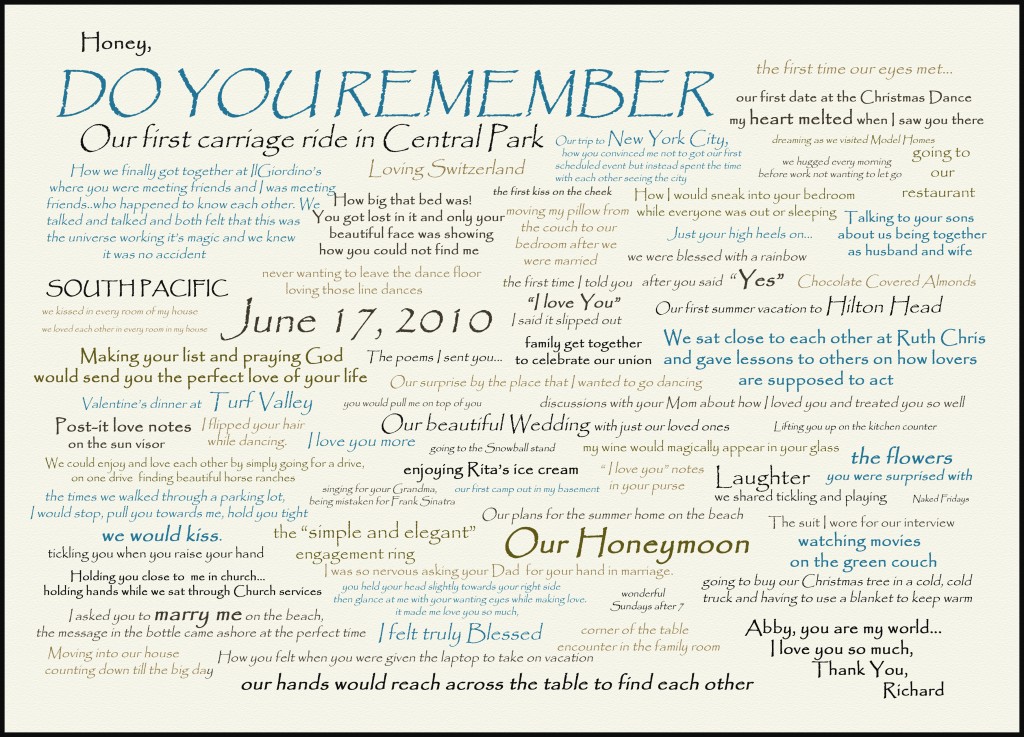 Honey,
DO YOU REMEMBER
the first time our eyes met...
our first date at the Christmas Dance
my heart melted when I saw you there
Our first carriage ride in Central Park
Our trip to New York City,
how you convinced me not to got our first
scheduled event but instead spent the time
with each other seeing the city
dreaming as we visited Model Homes
we hugged every morning
before work not wanting to let go
going to
our
restaurant
How we finally got together at IlGiordino's
where you were meeting friends and I was meeting
friends..who happened to know each other. We
talked and talked and both felt that this was
the universe working it's magic and we knew
it was no accident
Loving Switzerland
the first kiss on the cheek
How I would sneak into your bedroom
while everyone was out or sleeping
"How big that bed was!
You got lost in it and only your
beautiful face was showing
how you could not find me
moving my pillow from
the couch to our
bedroom after we
were married
Just your high heels on...
Talking to your sons
about us being together
as husband and wife
we were blessed with a rainbow
never wanting to leave the dance floor
loving those line dances
the first time I told you
"I love You"
I said it slipped out
after you said "Yes"
Chocolate Covered Almonds
SOUTH PACIFIC
we kissed in every room of my house
we loved each other in every room in my house
June 17, 2010
Our first summer vacation to Hilton Head
family get together
to celebrate our union
We sat close to each other at Ruth Chris
and gave lessons to others on how lovers
are supposed to act
Making your list and praying God
would send you the perfect love of your life
The poems I sent you...
Our surprise by the place that I wanted to go dancing
Valentine's dinner at Turf Valley
you would pull me on top of you
discussions with your Mom about how I loved you and treated you so well
Post-it love notes
on the sun visor
I flipped your hair
while dancing.
I love you more
Our beautiful Wedding with just our loved ones
Lifting you up on the kitchen counter
going to the Snowball stand
my wine would magically appear in your glass
We could enjoy and love each other by simply going for a drive,
on one drive finding beautiful horse ranches
enjoying Rita's ice cream
"I love you" notes
in your purse
Laughter
we shared tickling and playing
the flowers
you were surprised with
Naked Fridays
the times we walked through a parking lot,
I would stop, pull you towards me, hold you tight
we would kiss.
singing for your Grandma,
being mistaken for Frank Sinatra
our first camp out in my basement
Our plans for the summer home on the beach
tickling you when you raise your hand
the "simple and elegant"
engagement ring
Our Honeymoon
The suit I wore for our interview
watching movies
on the green couch
I was so nervous asking your Dad for your hand in marriage.
Holding you close to me in church...
holding hands while we sat through Church services
you held your head slightly towards your right side
then glance at me with your wanting eyes while making love.
it made me love you so much,
wonderful
Sundays after 7
going to buy our Christmas tree in a cold, cold
truck and having to use a blanket to keep warm
I asked you to marry me on the beach,
the message in the bottle came ashore at the perfect time
I felt truly Blessed
corner of the table
encounter in the family room
Moving into our house
counting down till the big day
How you felt when you were given the laptop to take on vacation
our hands would reach across the table to find each other
Abby, you are my world...
I love you so much,
Thank You,
Richard